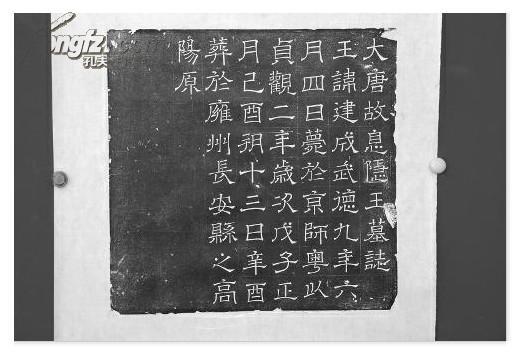 大唐故息隱王墓誌
王諱建成武德九年六
月四日薨於京師粵以
貞觀二年歲次戊子正
月己酉朔十三日辛酉
葬於雍州長安縣之高
陽原
ongfz
孔夫